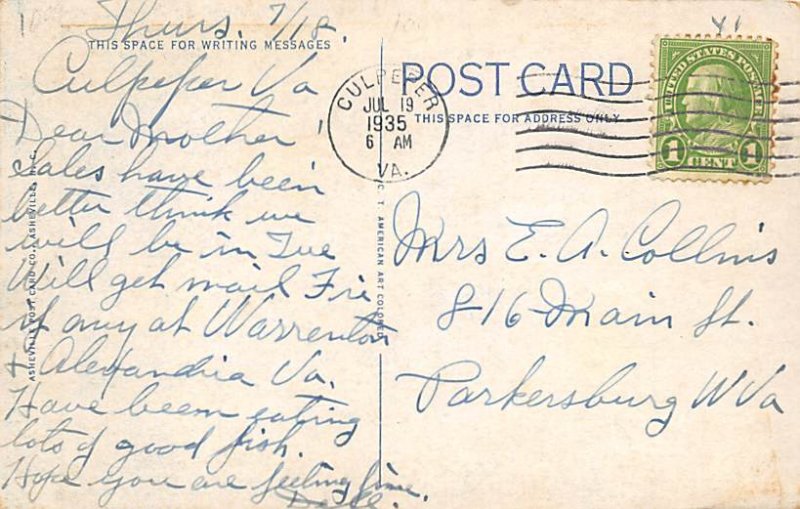 Thurs. 7/18.
THIS SPACE FOR WRITING MESSAGES
Culpeper Va
Dear Mother
Sales have been
better think we
will be in Tue
Will get mail Fri
if any at Warrenton
+ Alexandria Va.
Have been eating
lots of good fish.
Hope you are feeling fine.
ASHEVILLE POST CARD CO., ASHEVILLE, N. C.
C. T. AMERICAN ART COLORED
CULPEPER
JUL 19
1935
6 AM
VA.
POST CARD
THIS SPACE FOR ADDRESS ONLY
UNITED STATES POSTAGE
1 CENT 1
Mrs E. A. Collins
816 Main St.
Parkersburg W Va